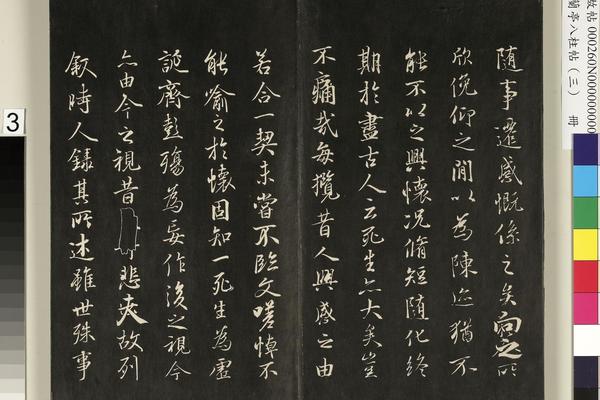 隨事遷感慨係之矣向之所
欣俛仰之間以為陳迹猶不
能不以之興懷況脩短隨化終
期於盡古人云死生亦大矣豈
不痛哉每攬昔人興感之由
若合一契未嘗不臨文嗟悼不
能喻之於懷固知一死生為虛
誕齊彭殤為妄作後之視今
亦由今之視昔悲夫故列
敘時人錄其所述雖世殊事
蘭亭八柱帖（三） 冊
故帖 000260N000000000
3